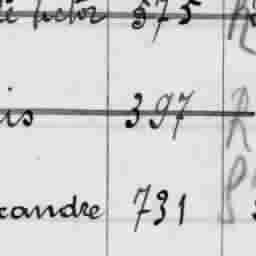 ctor 575 R
is 397 R
xandre 731